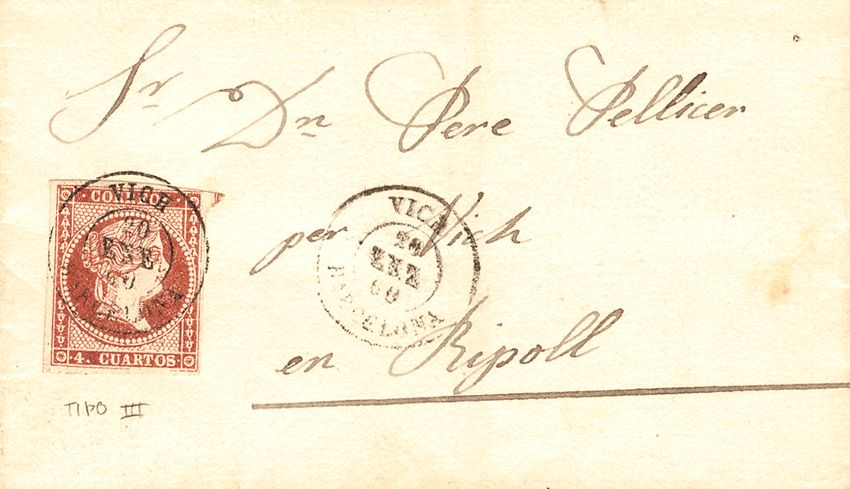 Sr Dn Pere Pellicer
per Vich
en Ripoll
CORREOS
4. CUARTOS.
VICH
20
ENE
60
BARCELONA
VICH
20
ENE
60
BARCELONA
TIPO III